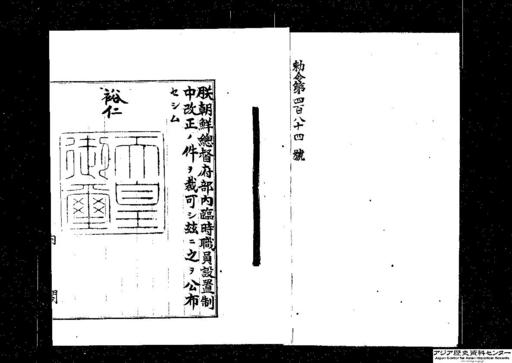 勅令第四百八十四號
朕朝鮮總督府部內臨時職員設置制
中改正ノ件ヲ裁可シ玆ニ之ヲ公布
セシム
裕仁
天皇
御璽
内
閣
アジア歴史資料センター
Japan Center for Asian Historical Records